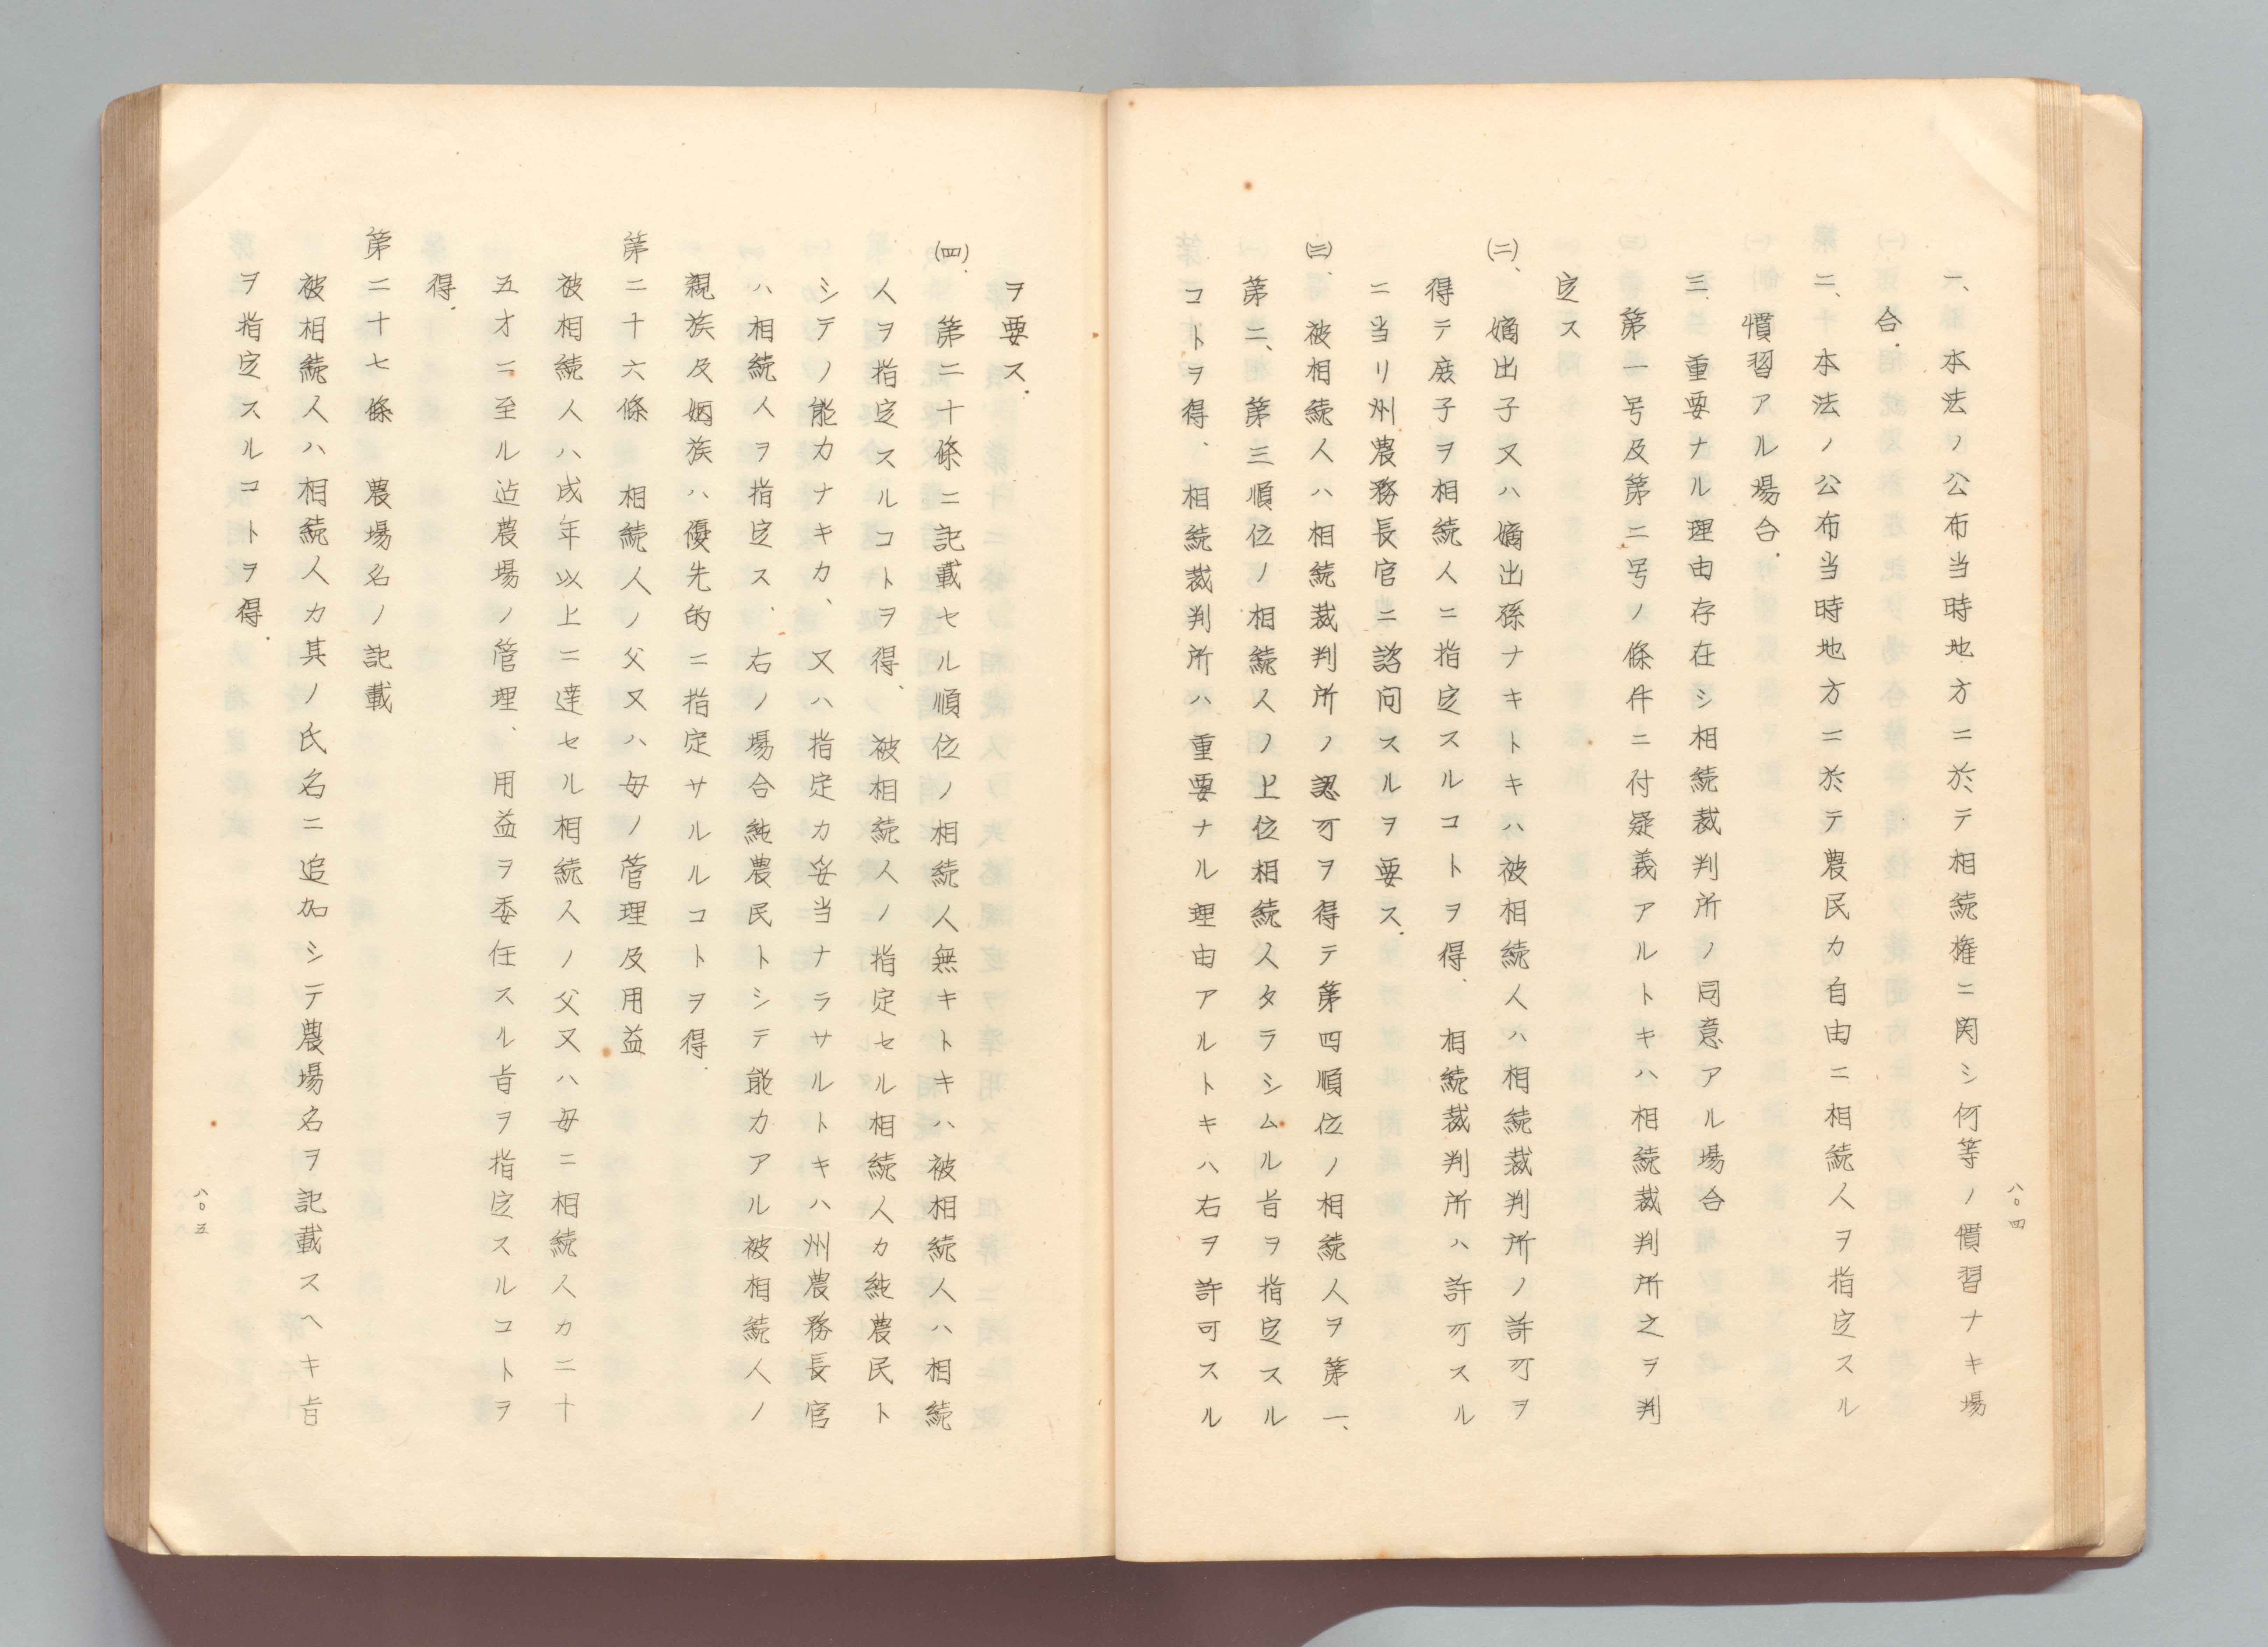 一、本法ノ公布当時地方ニ於テ相続権ニ関シ何等ノ慣習ナキ場
合.
二、本法ノ公布当時地方ニ於テ農民カ自由ニ相続人ヲ指定スル
慣習アル場合.
三.重要ナル理由存在シ相続裁判所ノ同意アル場合
第一号及第二号ノ條件ニ付疑義アルトキハ相続裁判所之ヲ判
定ス
(二)、嫡出子又ハ嫡出孫ナキトキハ被相続人ハ相続裁判所ノ許可ヲ
得テ庶子ヲ相続人ニ指定スルコトヲ得.相続裁判所ハ許可スル
ニ当リ州農務長官ニ諮問スルヲ要ス.
(三)、被相続人ハ相続裁判所ノ認可ヲ得テ第四順位ノ相続人ヲ第一、
第二、第三順位ノ相続人ノ上位相続人タラシムル旨ヲ指定スル
コトヲ得、相続裁判所ハ重要ナル理由アルトキハ右ヲ許可スル
八〇四
ヲ要ス.
(四).第二十條ニ記載セル順位ノ相続人無キトキハ被相続人ハ相続
人ヲ指定スルコトヲ得、被相続人ノ指定セル相続人カ純農民ト
シテノ能力ナキカ、又ハ指定カ妥当ナラサルトキハ州農務長官
ハ相続人ヲ指定ス、右ノ場合純農民トシテ能力アル被相続人ノ
親族及姻族ハ優先的ニ指定サルルコトヲ得.
第二十六條 相続人ノ父又ハ母ノ管理及用益
被相続人ハ成年以上ニ達セル相続人ノ父又ハ母ニ相続人カ二十
五才ニ至ル迠農場ノ管理、用益ヲ委任スル旨ヲ指定スルコトヲ
得.
第二十七條 農場名ノ記載
被相続人ハ相続人カ其ノ氏名ニ追加シテ農場名ヲ記載スヘキ旨
ヲ指定スルコトヲ得.
八〇五